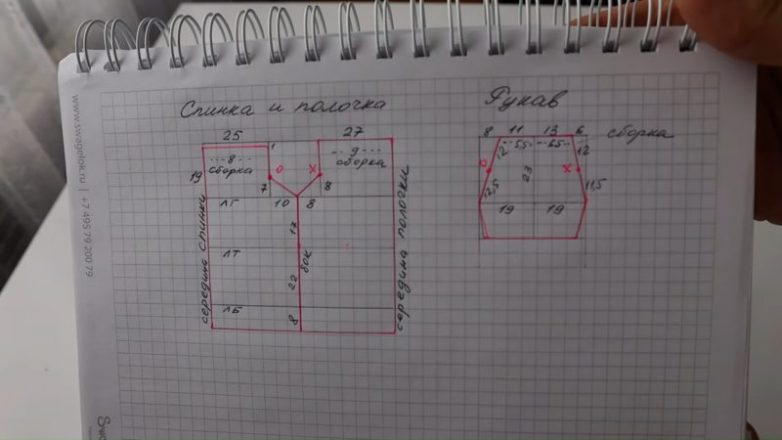 Спинка и полочка
25
1
27
8
сборка
9
сборка
19
О
Х
7
8
ЛГ
10
8
17
ЛТ
бок
22
ЛБ
8
середина спинки
середина полочки
Рукав
8
11
13
6
сборка
5,5
6,5
12
12
О
Х
23
12,5
11,5
19
19
www.swagelok.ru | +7 495 79 200 79